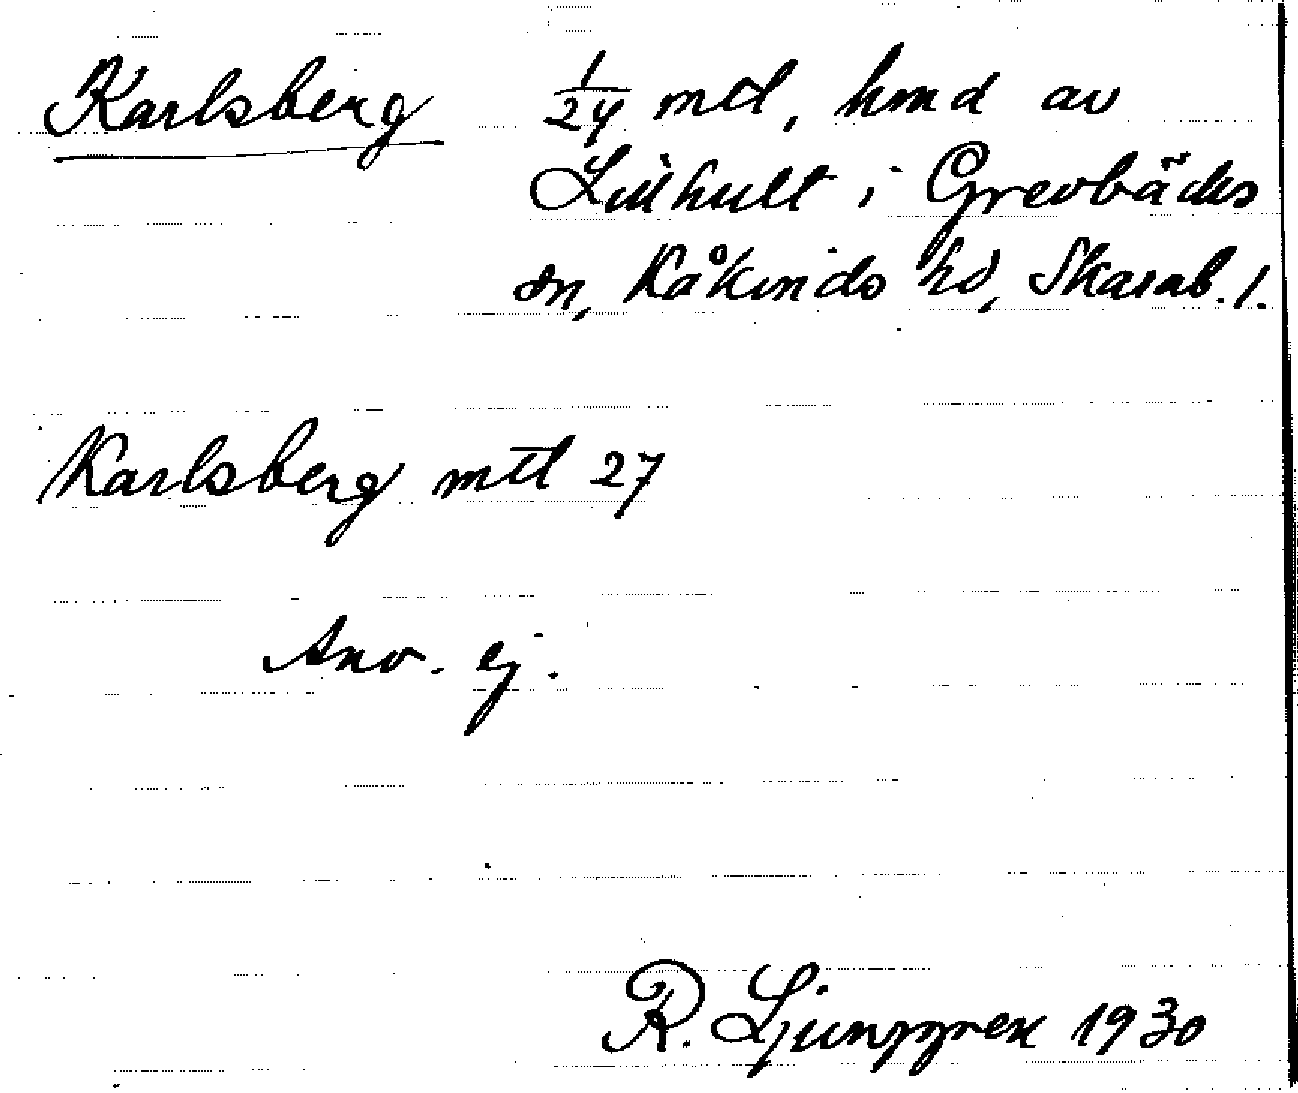 Karlsberg 1/24 mtl, hmd av
Lillhult i Grevbäcks
sn, Kåkinds hd, Skarab. l.
Karlsberg mtl 27
Anv. ej.
R. Ljunggren 1930